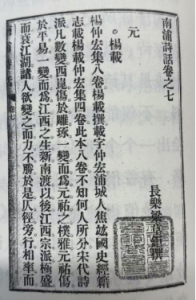 南浦詩話卷之七
長樂梁章鉅撰
元
楊載
楊仲宏集八卷楊載撰載字仲宏浦城人焦竑國史經籍
志載楊仲宏集四卷此本八卷不知何人所分宋代詩
派凡數變西崑傷於雕琢一變而爲元祐之樸雅元祐傷
於平易一變而爲江西之生新南渡以後江西宗派極盛
而衰江湖諸人欲變之而力不勝於是仄徑旁行相率而